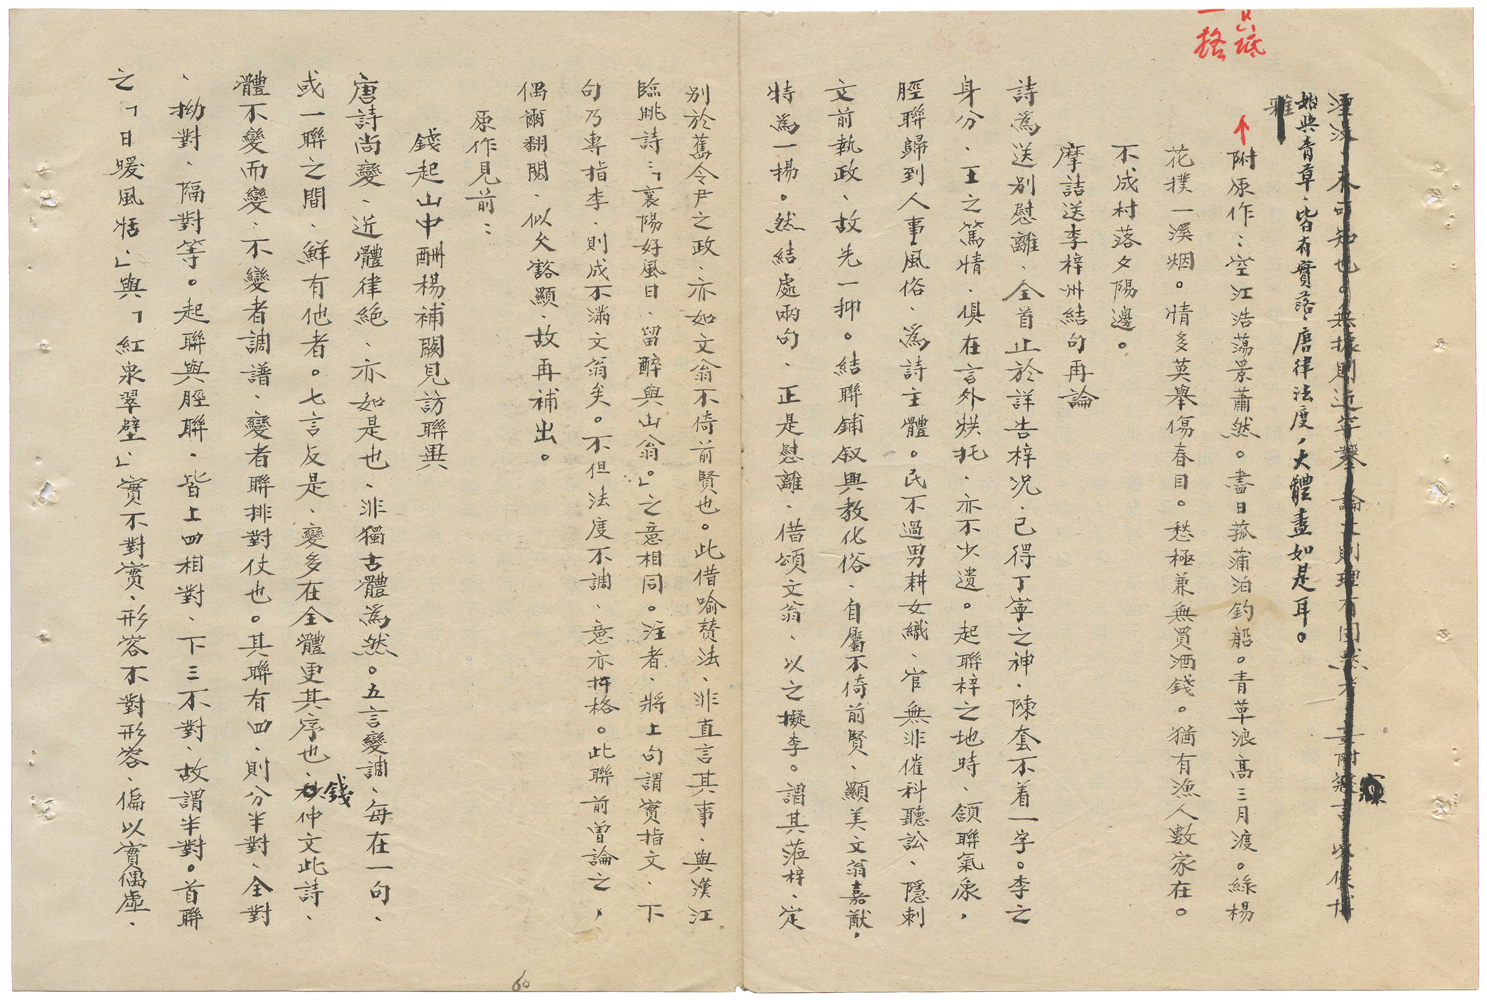 低
一格
湮沒、未可知也。無據則近穿鑿、論之則理有固然者、妄附寱言、以俟博
始與青草、皆有實落、唐律法度，大體盡如是耳。
雅
附原作：空江浩蕩景蕭然。盡日菰蒲泊釣船。青草浪高三月渡。綠楊
花撲一溪烟。情多莫舉傷春目。愁極兼無買酒錢。猶有漁人數家在。
不成村落夕陽邊。
摩詰送李梓州結句再論
詩為送別慰離、全首止於詳告梓況、已得丁寧之神、陳套不着一字。李之
身分、王之篤情、俱在言外烘托、亦不少遺。起聯梓之地時、頷聯氣象，
脛聯歸到人事風俗、為詩主體。民不過男耕女織、官無非催科聽訟、隱刺
文前執政、故先一抑。結聯鋪叙興教化俗、自屬不倚前賢、顯美文翁嘉猷，
特為一揚。然結處兩句、正是慰離、借頌文翁、以之擬李。謂其蒞梓、定
別於舊令尹之政、亦如文翁不倚前賢也。此借喻替法、非直言其事、與漢江
臨眺詩：「襄陽好風日、留醉與山翁。」之意相同。注者、將上句謂實指文、下
句乃專指李、則成不滿文翁矣。不但法度不調、意亦扞格。此聯前曾論之，
偶爾翻閱、似欠豁顯、故再補出。
原作見前：
錢起山中酬楊補闕見訪聯興
唐詩尚變、近體律絕、亦如是也、非獨古體為然。五言變調、每在一句、
或一聯之間、鮮有他者。七言反是、變多在全體更其序也、錢仲文此詩、
體不變而變、不變者調譜、變者聯排對仗也。其聯有四、則分半對、全對
、拗對、隔對等。起聯與脛聯、皆上四相對、下三不對、故謂半對。首聯
之「日暖風恬、」與「紅泉翠壁、」實不對實、形容不對形容、偏以實偶虛、
60